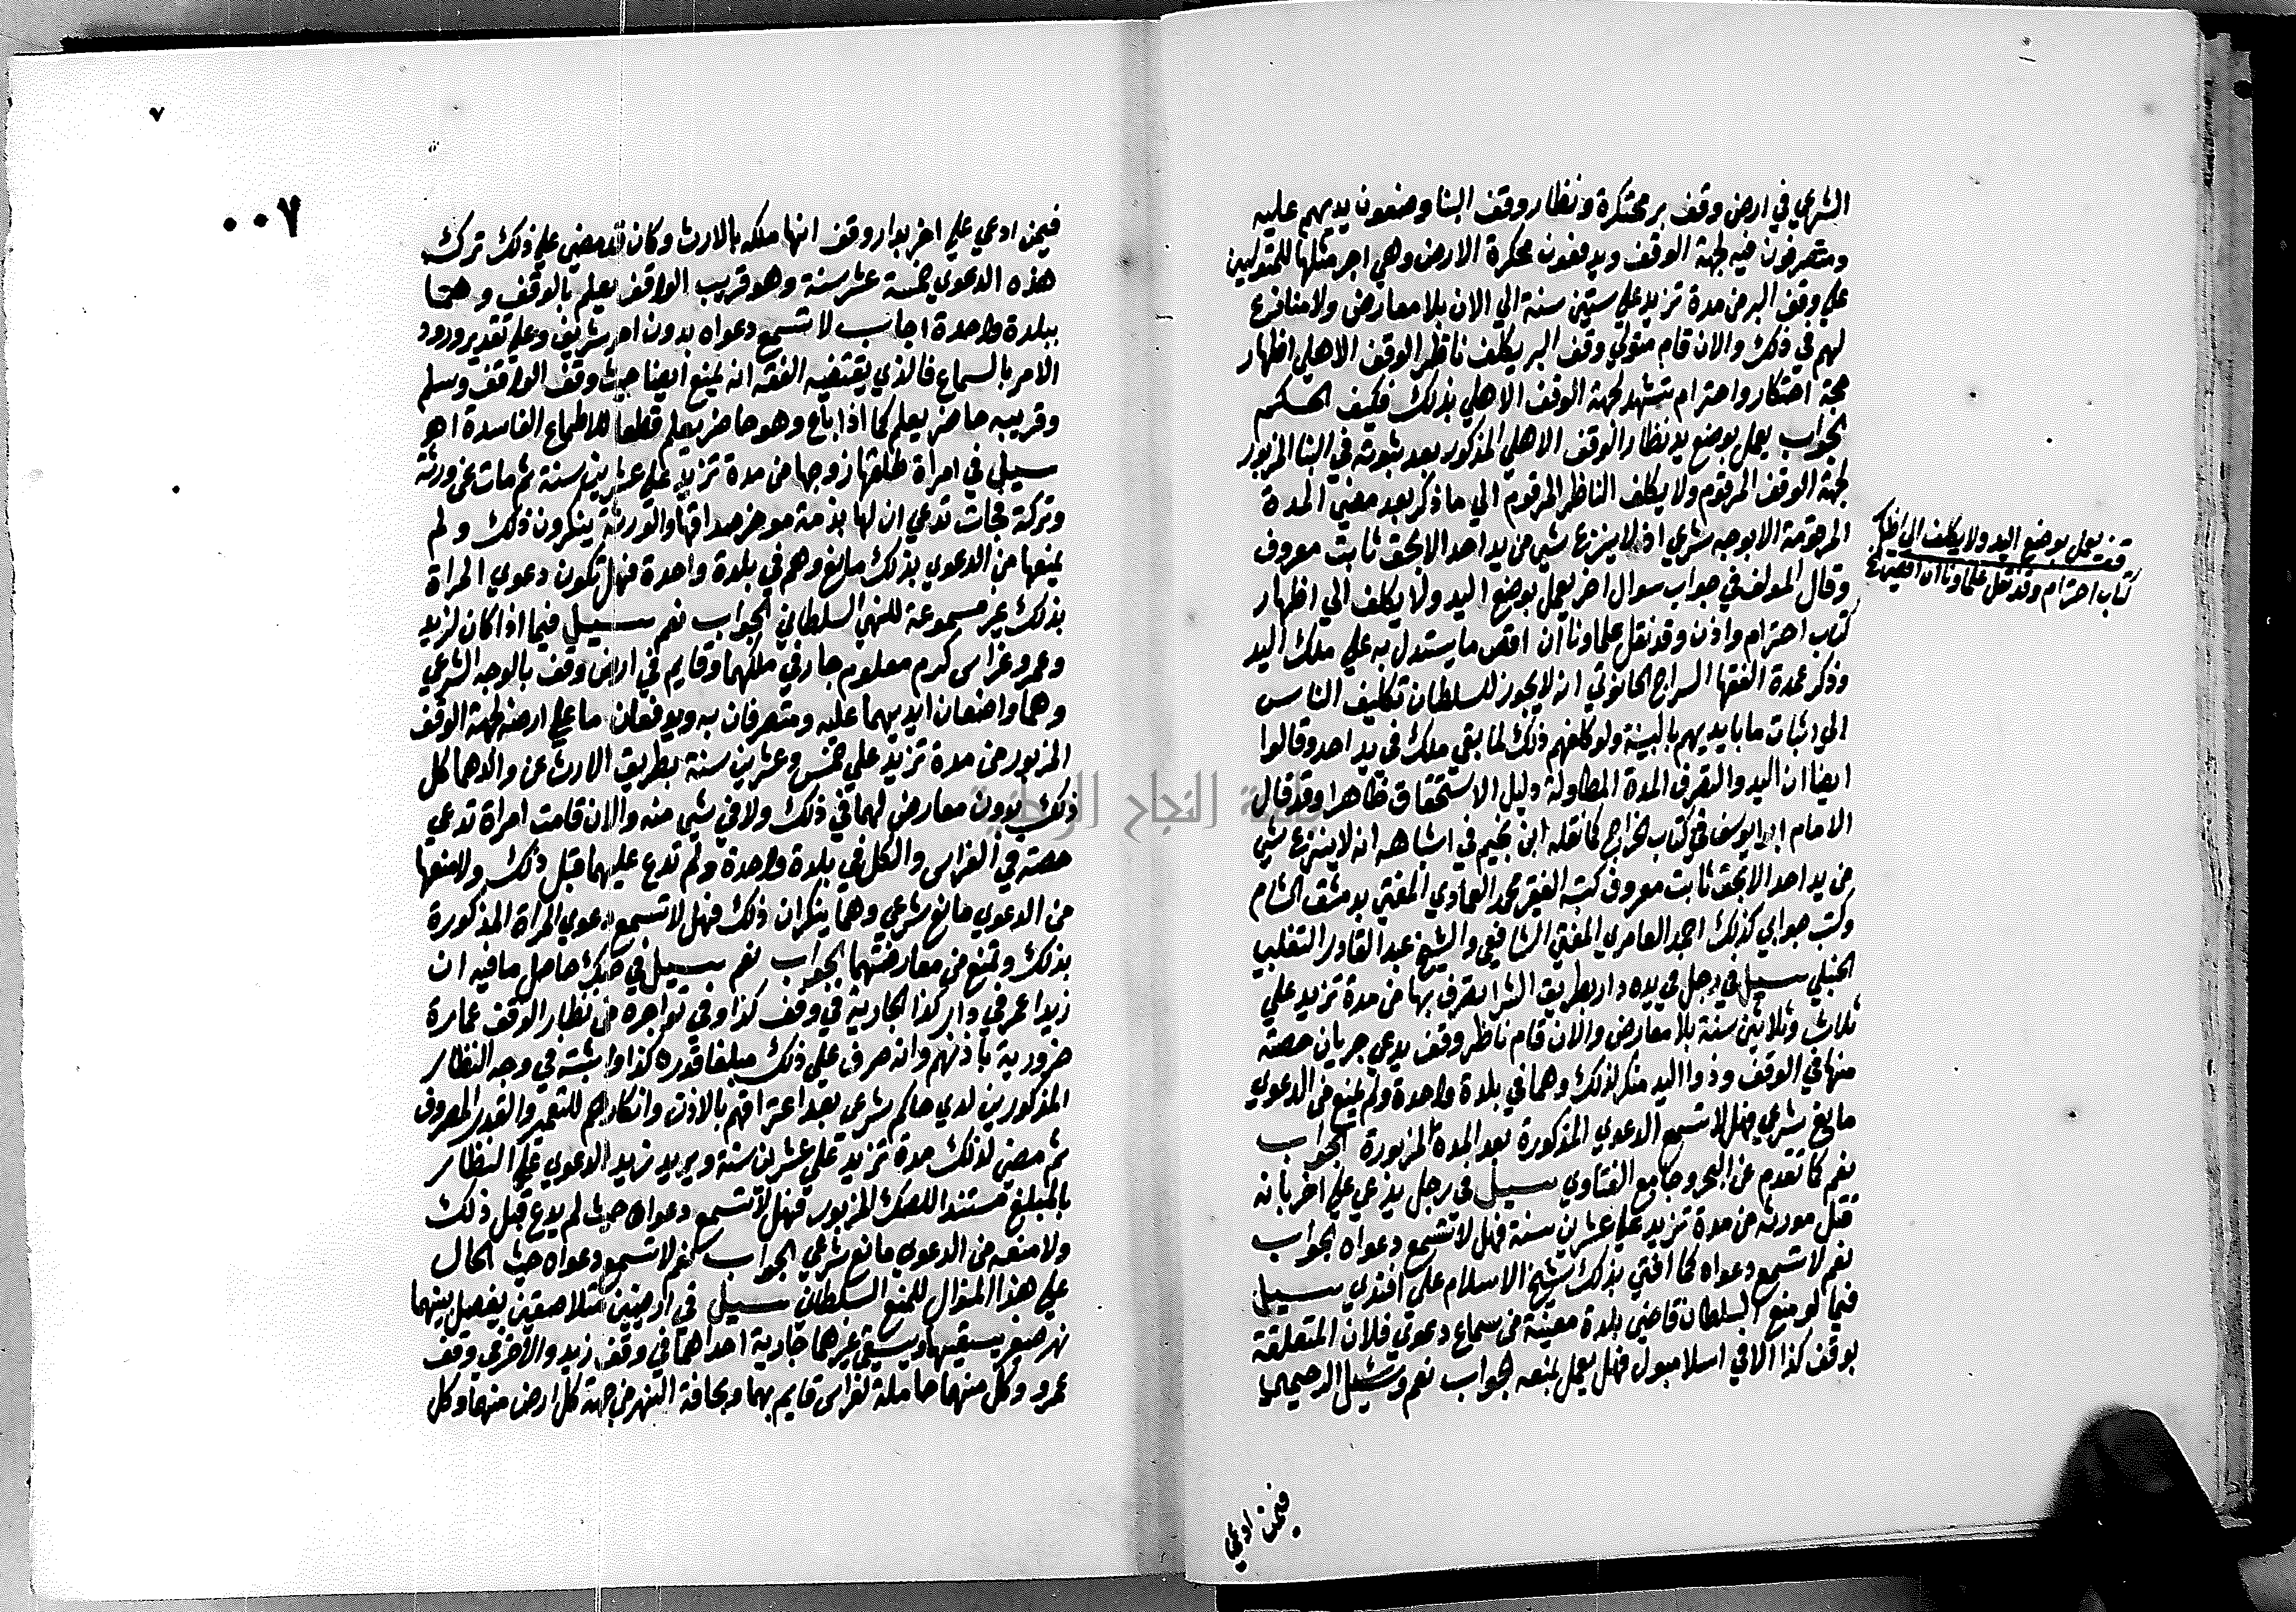 الشرعي في ارض وقف بر محتكرة ونظار وقف البنا وضعون يديهم عليه
ومتصرفون فيه لجهة الوقف ويدفعون محكرة الارض وهي اجر مثلها للمتولين
علي وقف البر من مدة تزيد علي ستين سنة الي الان بلا معارض ولا منازع
لهم في ذلك والان قام متولي وقف البر يكلف ناظر الوقف الاهلي اظهار
حجة احتكار واحترام تشهد لجهة الوقف الاهلي بذلك فكيف الحكم
الجواب يعمل بوضع يد نظار الوقف الاهلي المذكور بعد ثبوته في البنا المزبور
لجهة الوقف المرقوم ولا يكلف الناظر المرقوم الي ما ذكر بعد مضي المدة
المرقومة الا بوجه شرعي اذ لا ينزع شي من يد احد الا بحق ثابت معروف
وقال المولف في جواب سوال اخر يعمل بوضع اليد ولا يكلف الي اظهار
كتاب احترام واذن وقد نقل علماونا ان اقصي ما يستدل به علي ملك اليد
وذكر عمدة الفقها السراج الحانوتي انه لا يجوز للسلطان تكليف الناس
الي اثبات ما بايديهم بالبينة ولو كلفهم ذلك لما بقي ملك في يد احد وقالوا
ايضا ان اليد والتصرف المدة المطاولة دليل الاستحقاق ظاهرا وقد قال
الامام ابو يوسف في كتاب الخراج كما نقله ابن نجيم في اشباهه انه لا ينزع شي
من يد احد الا بحق ثابت معروف كتبه الفقير محمد العمادي المفتي بدمشق الشام
وكتب جوابي كذلك احمد العامري المفتي الشافعي والشيخ عبد القادر التغلبي
الحنبلي سيل في رجل في يده دار بطريق الشرا يتصرف بها من مدة تزيد علي
ثلاث وثلاثين سنة بلا معارض والان قام ناظر وقف يدعي جريان حصة
منها في الوقف وذوا اليد منكر لذلك وهما في بلدة واحدة ولم يمنع من الدعوي
مانع شرعي فهل لا تسمع الدعوي المذكورة بعد المدة المزبورة الجواب
نعم كما تقدم عن البحر وجامع الفتاوي سيل في رجل يدعي علي اخر بانه
قتل مورثه من مدة تزيد علي عشرين سنة فهل لا تسمع دعواه الجواب
نعم لا تسمع دعواه كما افتي بذلك شيخ الاسلام علي افندي سيل
فيما لو منع السلطان قاضي بلدة معينة من سماع دعوي فلان المتعلقة
بوقف كذا الا في اسلامبول فهل يعمل بمنعه الجواب نعم وسئل الرحيمي
فيمن ادعي
قف يعمل بوضع اليد ولا يكلف الي اظهار
كتاب احترام وقد نقل علماونا ان اقصي
٧
٠٠٧
فيمن ادعي علي اخر بدار وقف انها ملكه بالارث وكان قد مضي علي ذلك ترك
هذه الدعوي خمسة عشر سنة وهو قريب الواقف يعلم بالوقف وهما
ببلدة واحدة اجاب لا تسمع دعواه بدون امر شريف وعلي تقدير ورود
الامر بالسماع فالذي يقتضيه الفقه انه يمنع ايضا حيث وقف الواقف وسلم
وقريبه حاضر يعلم كما اذا باع وهو حاضر يعلم قطعا للاطماع الفاسدة اهو
سيل في امراة طلقها زوجها من مدة تزيد علي عشرين سنة ثم مات عن ورثة
وتركة فجات تدعي ان لها بذمة موخر صداقها والورثة ينكرون ذلك ولم
يمنعها من الدعوي بذلك مانع وهم في بلدة واحدة فهل تكون دعوي المراة
بذلك غير مسموعة للنهي السلطاني الجواب نعم سيل فيما اذا كان لزيد
وعمرو غراس كرم معلوم جار في ملكهما وقايم في ارض وقف بالوجه الشرعي
وهما واضعان ايديهما عليه ومتصرفان به ويدفعان ما علي ارضه لجهة الوقف
المزبور من مدة تزيد علي خمس وعشرين سنة بطريق الارث عن والدهما كل
ذلك بدون معارض لهما في ذلك ولا في شي منه والان قامت امراة تدعي
حصة في الغراس والكل في بلدة واحدة ولم تدع عليهما قبل ذلك ولا منعها
من الدعوي مانع شرعي وهما ينكران ذلك فهل لا تسمع دعوي المراة المذكورة
بذلك وتمنع من معارضتهما الجواب نعم سيل في صك حاصل ما فيه ان
زيدا عمر في دار كذا الجارية في وقف كذا وفي تواجره من نظار الوقف عمارة
ضرورية باذنهم وانه صرف علي ذلك مبلغا قدره كذا واثبته في وجه النظار
المذكورين لدي حاكم شرعي بعد اعترافهم بالاذن وانكارهم للتعمير والقدر المصروف
ثم مضي لذلك مدة تزيد علي عشرين سنة ويريد زيد الدعوي علي النظار
بالمبلغ مستندا للصك المزبور فهل لا تسمع دعواه حيث لم يدع قبل ذلك
ولا منعه من الدعوي مانع شرعي الجواب نعم لا تسمع دعواه حيث الحال
علي هذا المنوال للمنع السلطاني سيل في ارضين متلاصقتين يفصل بينهما
نهر صغير يسقيهما ويسقي غيرهما جارية احداهما في وقف زيد والاخري وقف
عمرو وكل منهما حاملة لغراس قايم بهما وبحافة النهر من جهة كل ارض منهما وكل